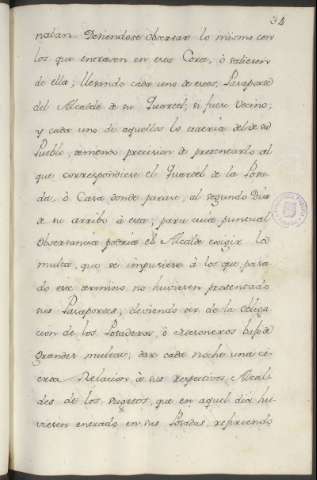 34
naban. Deviendose obserbar lo mismo con
los que entrasen en esta Corte, ò salieren
de ella; llebando cada uno de estos, Pasaporte
del Alcalde de su Quartel, si fuese Vecino;
y cada uno de aquellos lo traeria del de su
Pueblo, con precision de presentarlo al
que correspondiese el Quartel de la Posa
da, ò Casa, donde parase, al segundo Dia
de su arribo à esta; para cuia puntual
Observancia podria el Alcalde exigir la
multa, que se impusiere à los que, pasa
do este termino no huviesen presentado
sus Pasaportes; deviendo ser de la obliga
cion de los Posaderos, ò Mesoneros bajo de
grandes multas, dar cada noche una ce-
erta Relacion à sus respectivos Alcal-
des de los sugetos, que en aquel dia hu
viesen entrado en sus Posadas, refiriendo